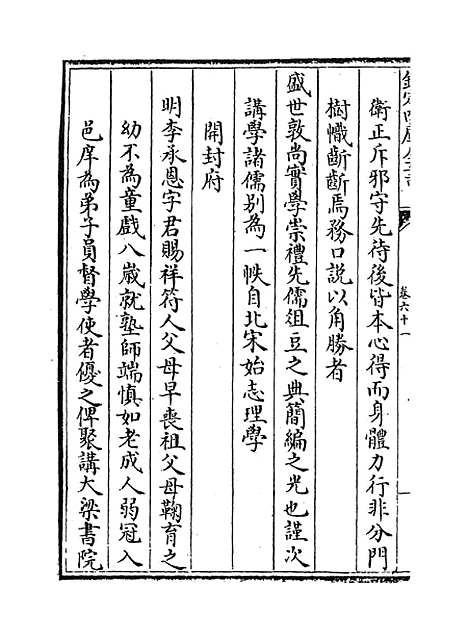 欽定四庫全書
卷六十一
衛正斥邪守先待後皆本心得而身體力行非分門
樹幟斷斷焉務口説以角勝者
盛世敦尚實學崇禮先儒俎豆之典簡編之光也謹次
講學諸儒别為一帙自北宋始志理學
開封府
明李承恩字君賜祥符人父母早喪祖父母鞠育之
幼不為童戲八嵗就塾師端慎如老成人弱冠入
邑庠為弟子員督學使者優之俾聚講大梁書院